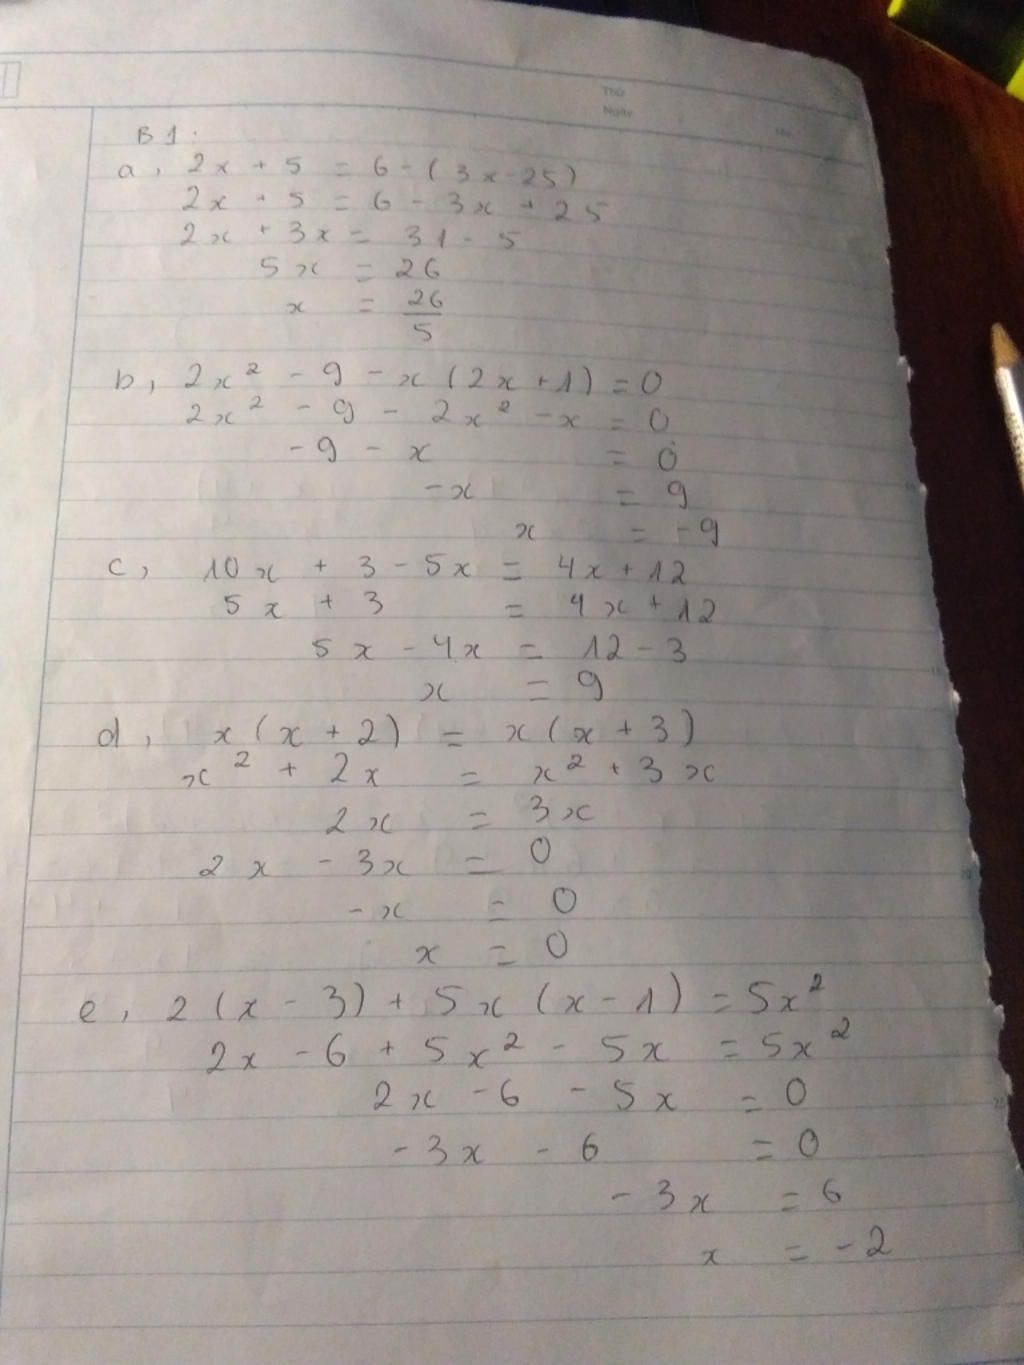 Thứ
Ngày
B1:
a, 2x + 5 = 6 - (3x - 25)
2x + 5 = 6 - 3x + 25
2x + 3x = 31 - 5
5x = 26
x = 26/5
b, 2x² - 9 - x(2x + 1) = 0
2x² - 9 - 2x² - x = 0
-9 - x = 0
-x = 9
x = -9
c, 10x + 3 - 5x = 4x + 12
5x + 3 = 4x + 12
5x - 4x = 12 - 3
x = 9
d, x(x + 2) = x(x + 3)
x² + 2x = x² + 3x
2x = 3x
2x - 3x = 0
-x = 0
x = 0
e, 2(x - 3) + 5x(x - 1) = 5x²
2x - 6 + 5x² - 5x = 5x²
2x - 6 - 5x = 0
-3x - 6 = 0
-3x = 6
x = -2